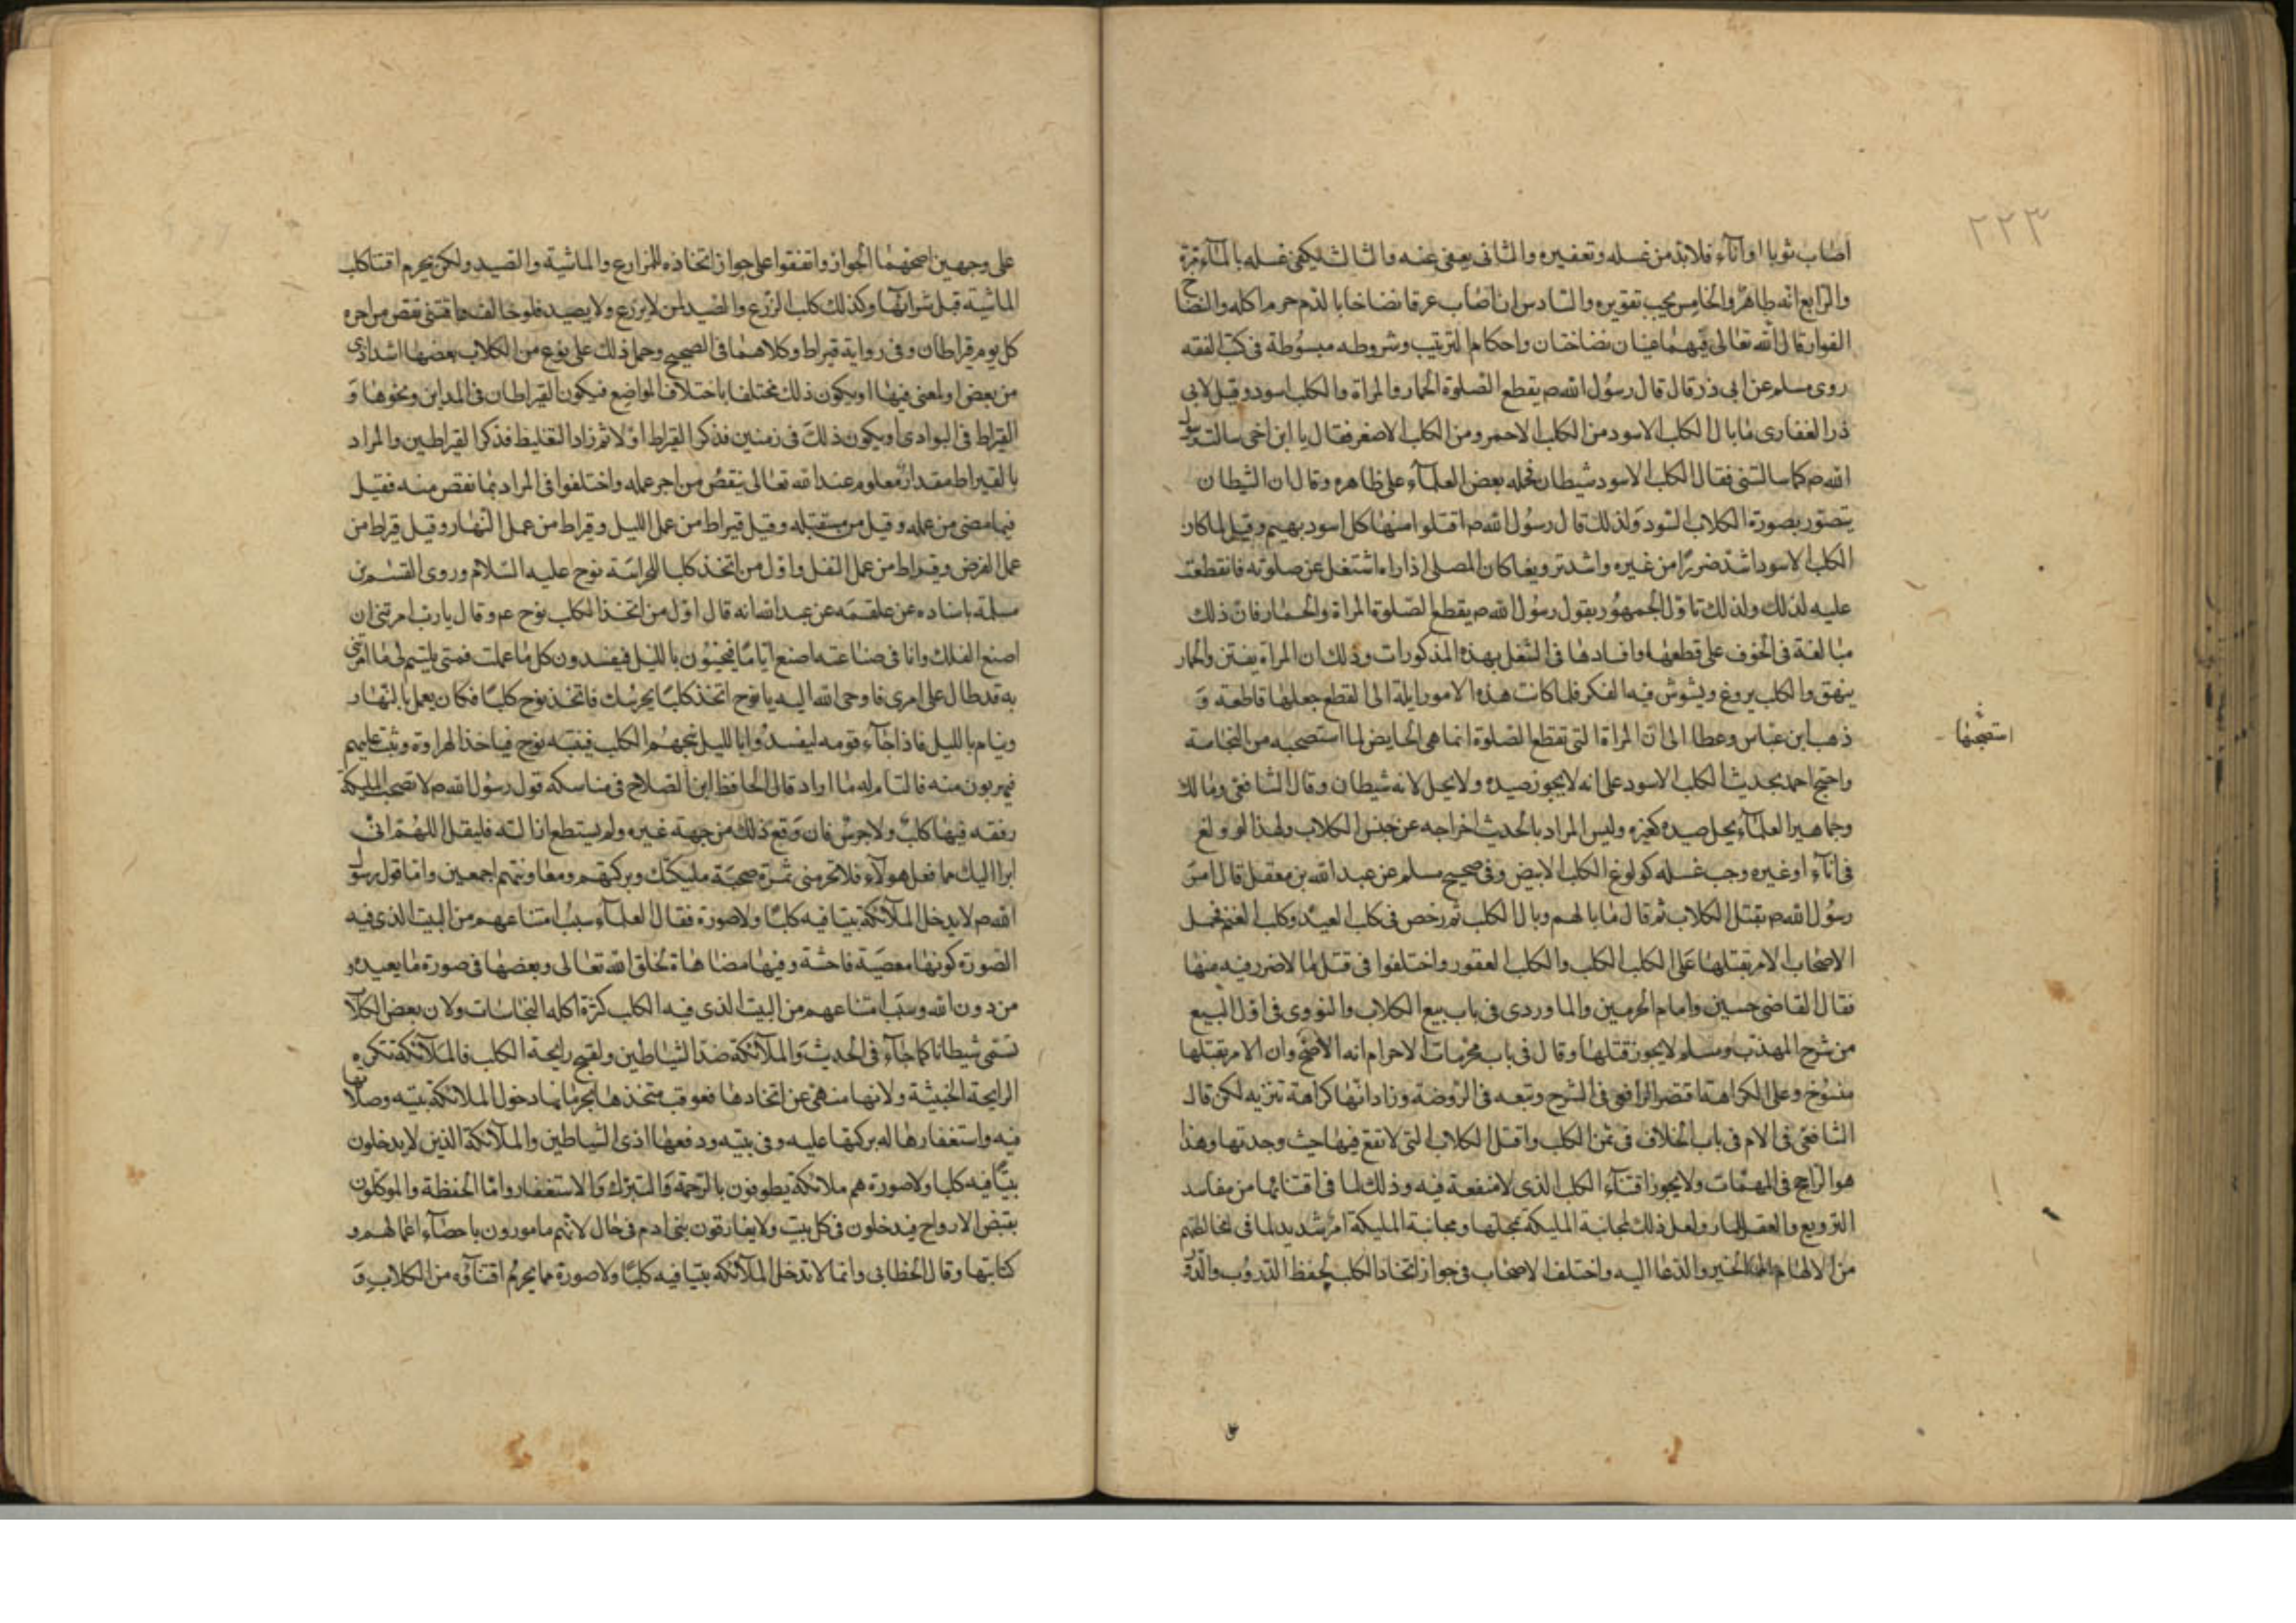 ٢٢٣
اصاب ثوبا او اناء فلابد من غسله وتعفيره والثانى يعفى عنه والثالث يكفى غسله بالماء مرة
والرابع انه طاهر والخامس يجب تقويره والسادس ان اصاب عرقا نضاخا بالدم حرم اكله والنضاخ
الفوار قال الله تعالى فيهما عينان نضاختان واحكام الترتيب وشروطه مبسوطة فى كتب الفقه
روى مسلم عن ابى ذر قال قال رسول الله صم يقطع الصلوة الحمار والمراة والكلب اسود وقيل لابى
ذر الغفارى ما بال الكلب الاسود من الكلب الاحمر ومن الكلب الاصفر فقال يا ابن اخى سالت رسول
الله صم كما سالتنى فقال الكلب الاسود شيطان فحمله بعض العلماء على ظاهره وقال ان الشيطان
يتصور بصورة الكلاب السود ولذلك قال رسول الله صم اقتلوا منها كل اسود بهيم وقيل لما كان
الكلب الاسود اشد ضررا من غيره واشد ترويعا كان المصلى اذا راه اشتغل عن صلوته فانقطعت
عليه لذلك ولذلك تاول الجمهور بقول رسول الله صم يقطع الصلوة المراة والحمار فان ذلك
مبالغة فى الخوف على قطعها وافسادها فى الشغل بهذه المذكورات وذلك ان المراة يفتن والحمار
ينهق والكلب يروع ويشوش فيه الفكر فلما كانت هذه الامور ايلة الى القطع جعلها قاطعة و
ذهب ابن عباس وعطا الى ان المراة التى تقطع الصلوة انما هى الحايض لما استصحبه من النجاسة
استصحبها
واحتج احمد بحديث الكلب الاسود على انه لا يجوز صيده ولا يحل لانه شيطان وقال الشافعى ومالك
وجماهير العلماء يحل صيده كغيره وليس المراد بالحديث اخراجه عن جنس الكلاب ولهذا لو ولغ
فى اناء او غيره وجب غسله كولوغ الكلب الابيض وفى صحيح مسلم عن عبد الله بن معقل قال امر
رسول الله صم بقتل الكلاب ثم قال ما بالهم وبال الكلب ثم رخص فى كلب العيد وكلب الغنم فحمل
الاصحاب الامر بقتلها على الكلب الكلب والكلب العقور واختلفوا فى قتل ما لا ضرر فيه منها
فقال القاضى حسين وامام الحرمين والماوردى فى باب بيع الكلاب والنووى فى اول البيع
من شرح المهذب ومسلم لا يجوز قتلها وقال فى باب محرمات الاحرام انه الاصح وان الامر بقتلها
منسوخ وعلى الكراهة اقتصر الرافعى فى الشرح وتبعه فى الروضة وزاد انها كراهة تنزيه لكن قال
الشافعى فى الام فى باب الخلاف فى ثمن الكلب واقتل الكلاب التى لا نفع فيها حيث وجدتها وهذا
هو الراجح فى المهمات ولا يجوز اقتناء الكلب الذى لا منفعة فيه وذلك لما فى اقتنائها من مفاسد
الترويع والعقر للمار ولعل ذلك لمجانبة المليكة محلها ومجانبة المليكة امر شديد لما فى مخالطتهم
من الالهام الخير والدعا اليه واختلف الاصحاب فى جواز اتخاذ الكلب لحفظ الدروب والدور
على وجهين اصحهما الجواز واتفقوا على جواز اتخاذه للزارع والماشية والصيد ولكن يحرم اقتنا كلب
الماشية قبل شرائها وكذلك كلب الزرع والصيد لمن لا يزرع ولا يصيد فلو خالف واقتنى نقص من اجره
كل يوم قيراطان وفى رواية قيراط وكلاهما فى الصحيح وحمل ذلك على نوع من الكلاب بعضها اشد اذى
من بعض او لمعنى فيها او يكون ذلك مختلفا باختلاف المواضع فيكون القيراطان فى المداين ونحوها و
القيراط فى البوادى او يكون ذلك فى زمنين فذكر القيراط اولا ثم زاد التغليظ فذكر القيراطين والمراد
بالقيراط مقدار معلوم عند الله تعالى ينقص من اجر عمله واختلفوا فى المراد بما نقص منه فقيل
فيما مضى من عمله وقيل من مستقبله وقيل قيراط من عمل الليل وقيراط من عمل النهار وقيل قيراط من
عمل الفرض وقيراط من عمل النفل واول من اتخذ كلبا للحراسة نوح عليه السلام وروى القسم بن
سلمة باسناده عن علقمه عن عبد الله انه قال اول من اتخذ الكلب نوح عم وقال يا رب امرتنى ان
اصنع الفلك وانا فى صناعته اصنع اياما فيجيئون بالليل فيفسدون كل ما عملت فمتى يلتيم لى ما امرتنى
به قد طال على امرى فاوحى الله اليه يا نوح اتخذ كلبا يحرسك فاتخذ نوح كلبا فكان يعمل بالنهار
وينام بالليل فاذا جاء قومه ليفسدوا بالليل نبحهم الكلب فينتبه نوح فياخذ الهراوة ويثب عليهم
فيهربون منه فالتام له ما اراد قال الحافظ ابن الصلاح فى مناسكه قول رسول الله صم لا تصحب المليكة
رفقه فيها كلب ولا جرس فان وقع ذلك من جهة غيره ولم يستطع ازالته فليقل اللهم انى
ابرا اليك مما فعل هولاء فلا تحرمنى ثمرة صحبة مليكتك وبركتهم ومعاونتهم اجمعين واما قول رسول
الله صم لا يدخل الملائكة بيتا فيه كلبا ولا صورة فقال العلماء سبب امتناعهم من البيت الذى فيه
الصورة كونها معصية فاحشة وفيها مضاهاة لخلق الله تعالى وبعضها فى صورة ما يعبد و
من دون الله وسبب امتناعهم من البيت الذى فيه الكلب كثرة اكله النجاسات ولان بعض الكلاب
تسمى شيطانا كما جاء فى الحديث والملائكة ضد الشياطين ولقبح رايحة الكلب فالملائكة تكره
الرايحة الخبيثة ولانها منهى عن اتخاذها فعوقب متخذها بحرمانها دخول الملائكة بيته وصلاتها
فيه واستغفارها له بركتها عليه وفى بيته ودفعها اذى الشياطين والملائكة الذين لا يدخلون
بيتا فيه كلبا ولا صورة هم ملائكة يطوفون بالرحمة والتبرك والاستغفار واما الحفظة والموكلون
بقبض الارواح فيدخلون فى كل بيت ولا يفارقون بنى ادم فى حال لانهم مامورون باحصاء اعمالهم و
كتابتها وقال الخطابى وانما لا تدخل الملائكه بيتا فيه كلبا ولا صورة مما يحرم اقتناؤه من الكلاب و